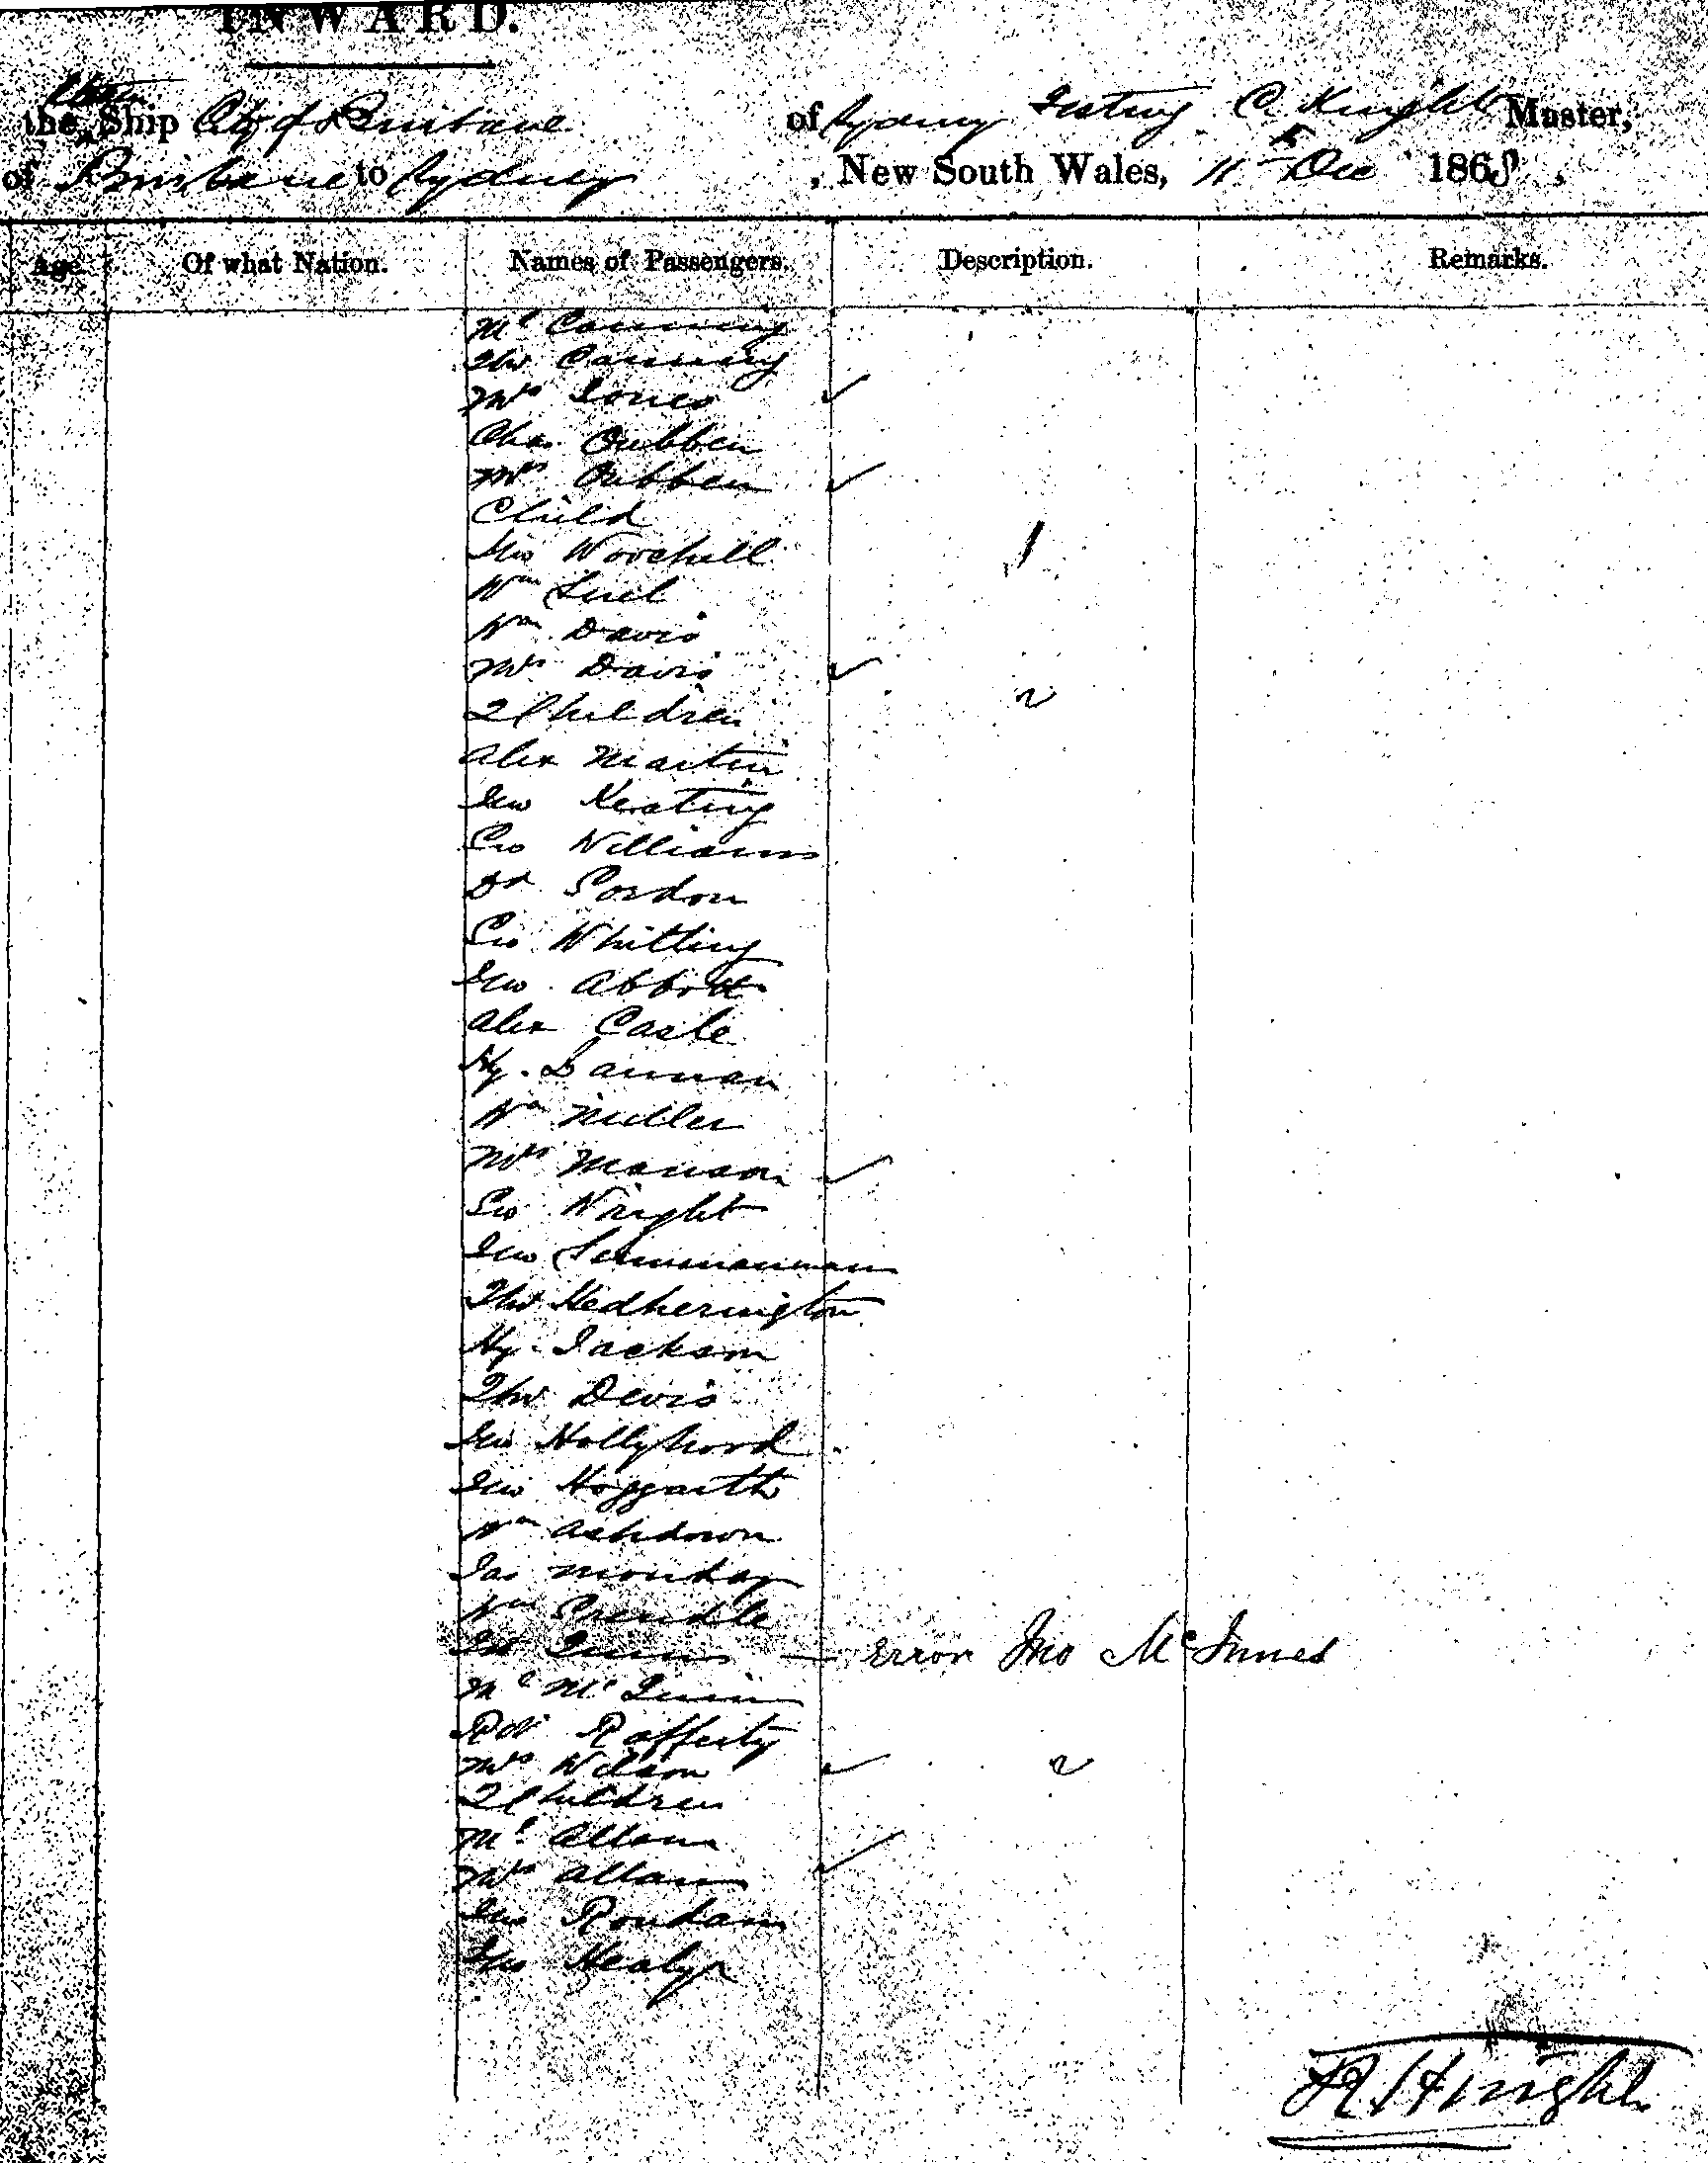 INWARD.
the Steam Ship City of Brisbane of Sydney Testing C Knight Master,
of Brisbane to Sydney , New South Wales, 11th Dec 1863 ,
Age. Of what Nation. Names of Passengers. Description. Remarks.
Mr Canning
Thos Canning
Mrs Jones ✓
Chas Cubben
Mrs Cubben ✓
Child
Jno Worehill 1
Wm
Wm Davis
Mrs Davis ✓
2 Children 2
Alex Martin
Jno Keating
Geo Williams
Dd Gordon
Geo Whitting
Jno Abbott
Alex Casle
Hy. Bannan
Wm Miller
Mrs Manson ✓
Geo Wright
Jno
Thos Hedherington
Hy. Jackson
Thos Devis
Jno Hollyhord
Jno Hoggarth
Wm Ashdown
Jas Monday
Wm Prendle
Quinn — Error Jno McInnes
Mc McQuin
Rafferty
Mrs Wilson ✓ 2
2 Children
Mr Allan
Mrs Allan ✓
Jno Roudam
Jno Healy
R Knight